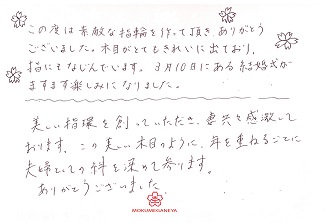 この度は素敵な指輪を作って頂き、ありがとう
ございました。木目がとてもきれいに出ており、
指にもなじんでいます。3月10日にある結婚式が
ますます楽しみになりました。
美しい指環を創っていただき、妻共々感激して
おります。この美しい木目のように、年を重ねるごとに
夫婦としての絆を深めて参ります。
ありがとうございました
MOKUMEGANEYA